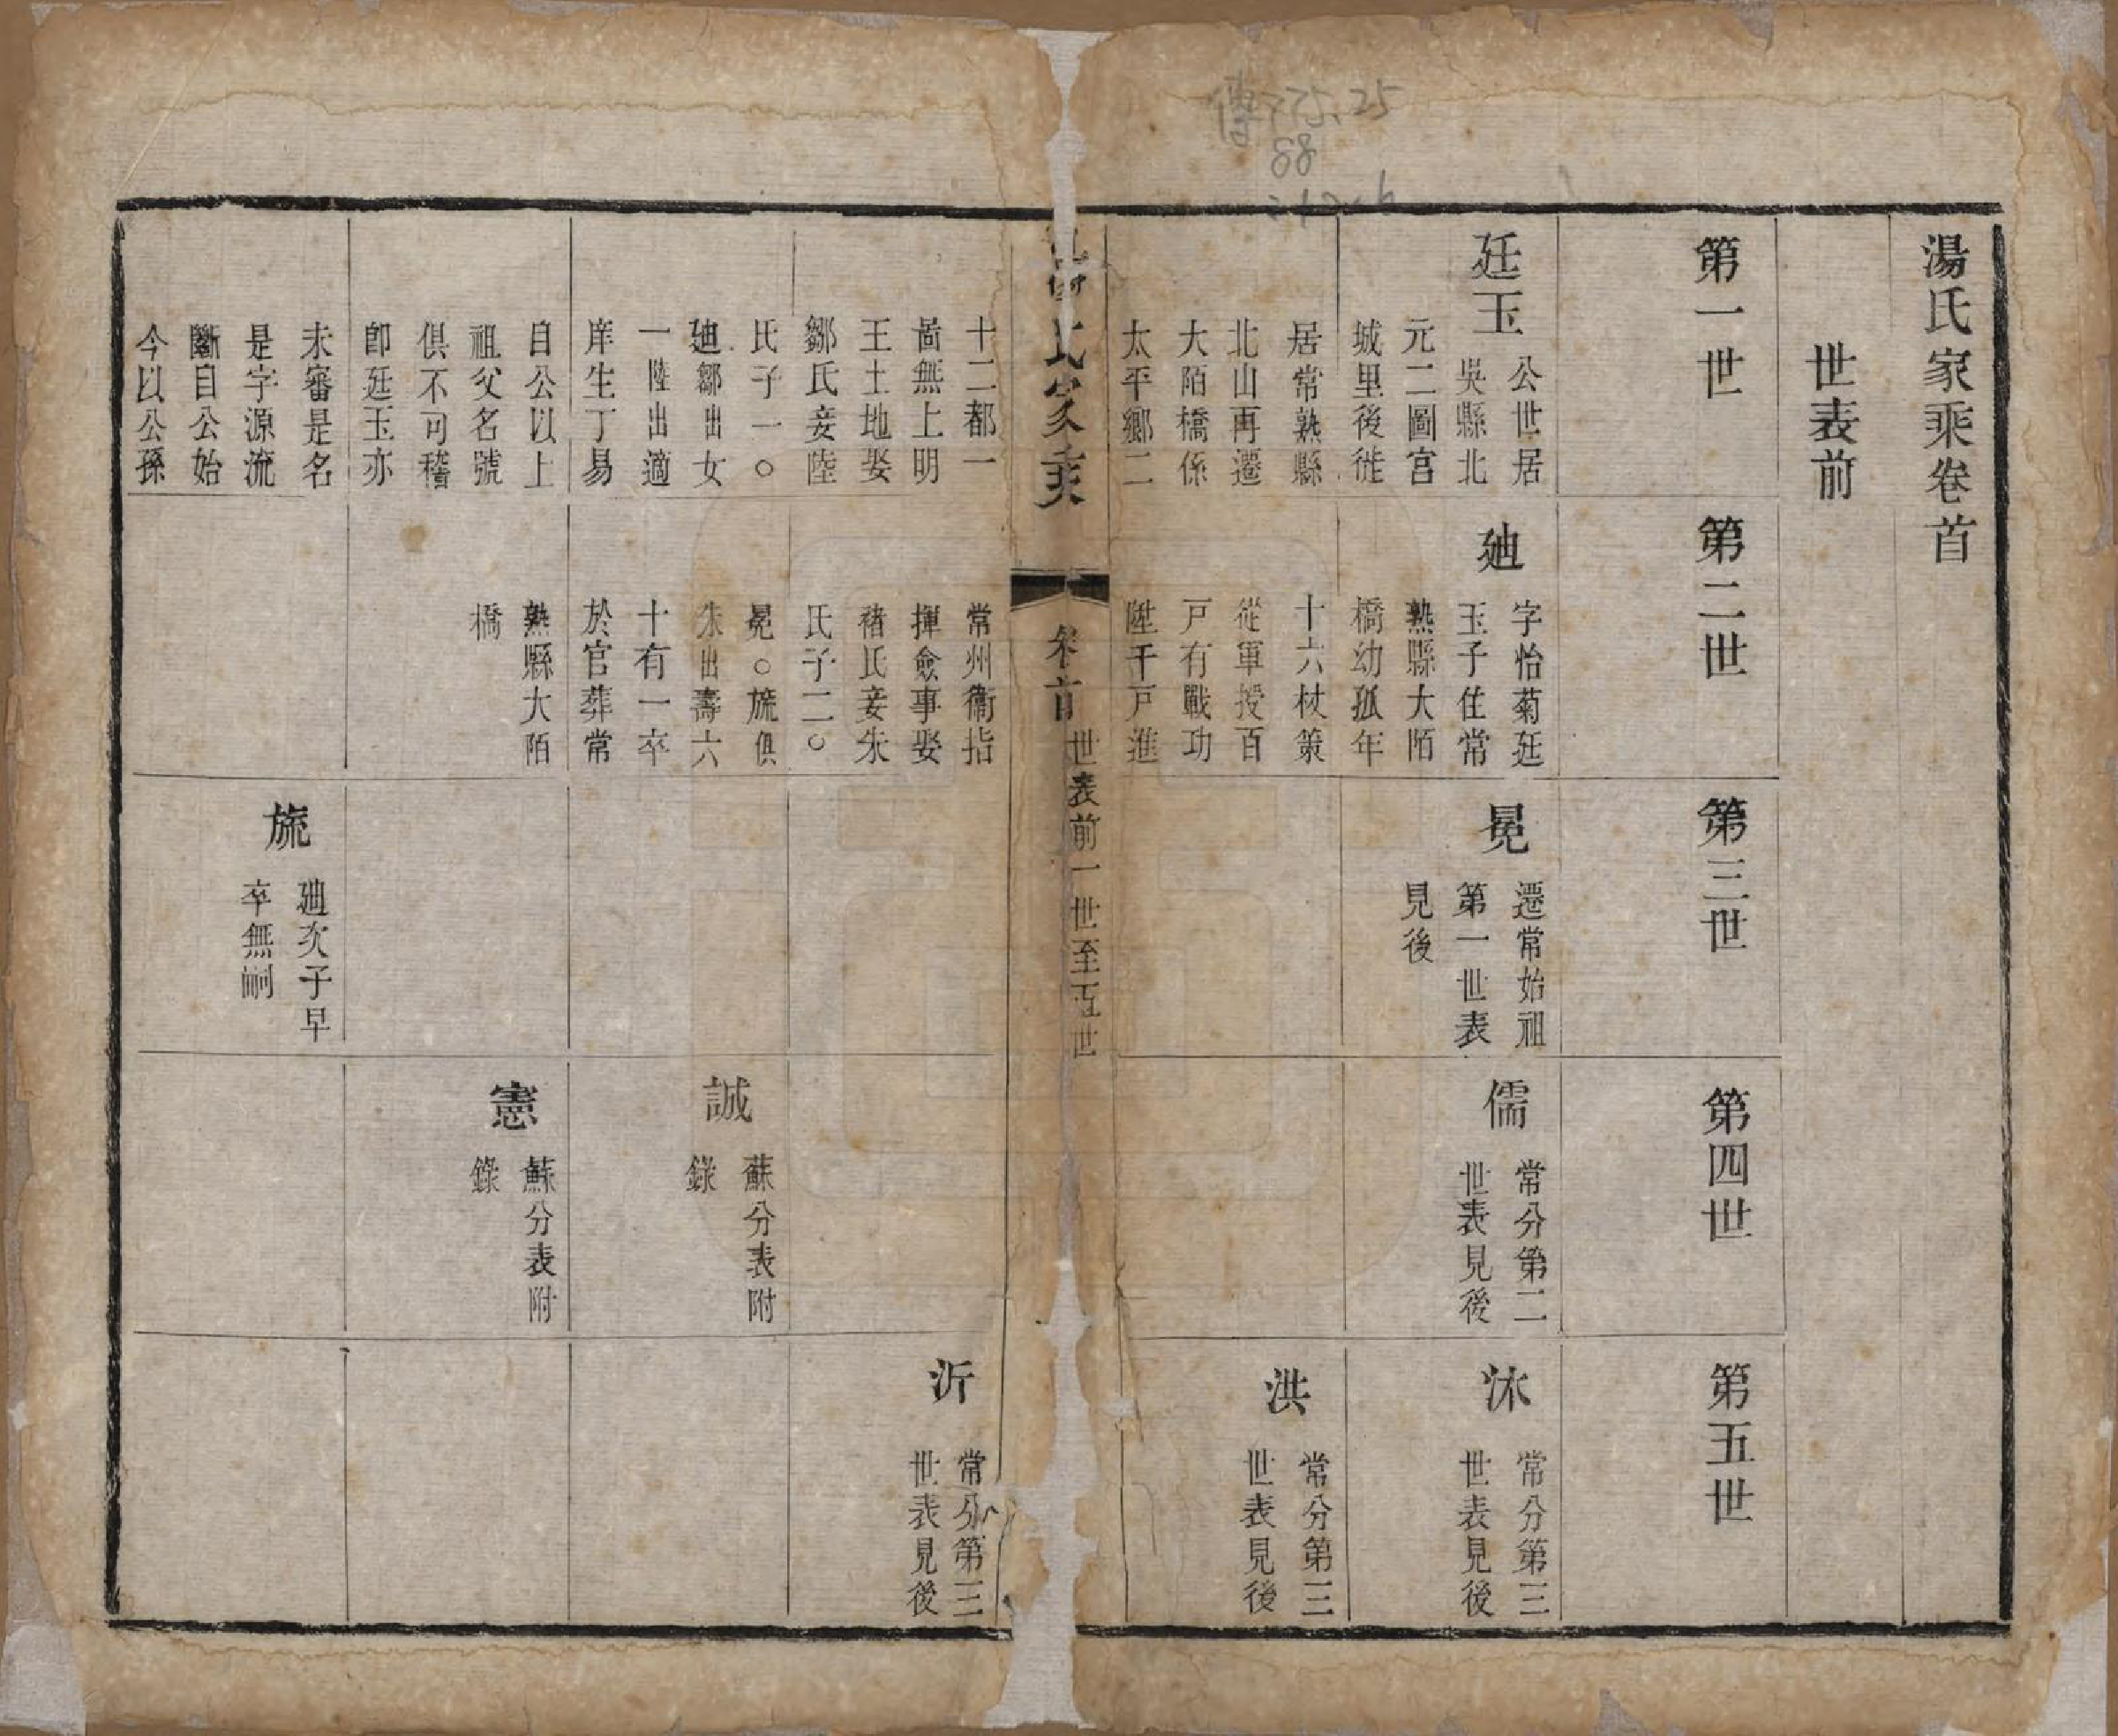 湯氏家乘卷首
世表前
第一世
第二世
第三世
第四世
第五世
廷玉
公世居
吳縣北
元二圖宫
城里後徙
居常熟縣
北山再遷
大陌橋係
太平鄉二
十二都一
啚無上明
王土地娶
鄒氏妾陸
氏子一○
廸鄒出女
一陸出適
庠生丁易
自公以上
祖父名號
俱不可稽
卽廷玉亦
未審是名
是字源流
斷自公始
今以公孫
廸
字怡菊廷
玉子住常
熟縣大陌
橋幼孤年
十六杖策
從軍授百
戸有戰功
陞千戸進
常州衞指
揮僉事娶
褚氏妾朱
氏子二○
冕○旒俱
朱出壽六
十有一卒
於官葬常
熟縣大陌
橋
冕
遷常始祖
第一世表
見後
旒
廸次子早
卒無嗣
儒
常分第二
世表見後
誠
蘇分表附
錄
憲
蘇分表附
錄
沐
常分第三
世表見後
洪
常分第三
世表見後
沂
常分第三
世表見後
氏家乘
卷首
世表前一世至五世
775.25
88